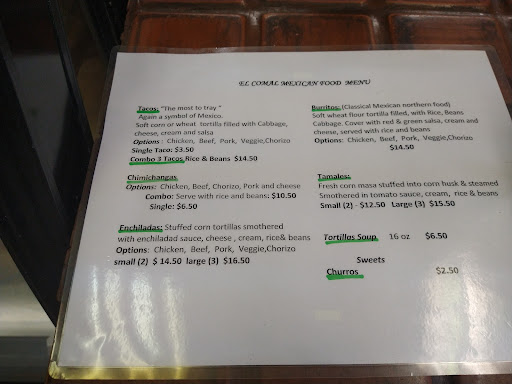 EL COMAL MEXICAN FOOD MENU
Tacos: "The most to tray "
Again a symbol of Mexico.
Soft corn or wheat tortilla filled with Cabbage,
cheese, cream and salsa
Options : Chicken, Beef, Pork, Veggie,Chorizo
Single Taco: $3.50
Combo 3 Tacos Rice & Beans $14.50
Chimichangas
Options: Chicken, Beef, Chorizo, Pork and cheese
Combo: Serve with rice and beans: $10.50
Single: $6.50
Enchiladas: Stuffed corn tortillas smothered
with enchiladad sauce, cheese , cream, rice& beans
Options: Chicken, Beef, Pork, Veggie,Chorizo
small (2) $ 14.50 large (3) $16.50
Burritos: (Classical Mexican northern food)
Soft wheat flour tortilla filled, with Rice, Beans
Cabbage. Cover with red & green salsa, cream and
cheese, served with rice and beans
Options: Chicken, Beef, Pork, Veggie,Chorizo
$14.50
Tamales:
Fresh corn masa stuffed into corn husk & steamed
Smothered in tomato sauce, cream, rice & beans
Small (2) - $12.50 Large (3) $15.50
Tortillas Soup 16 oz $6.50
Sweets
Churros $2.50